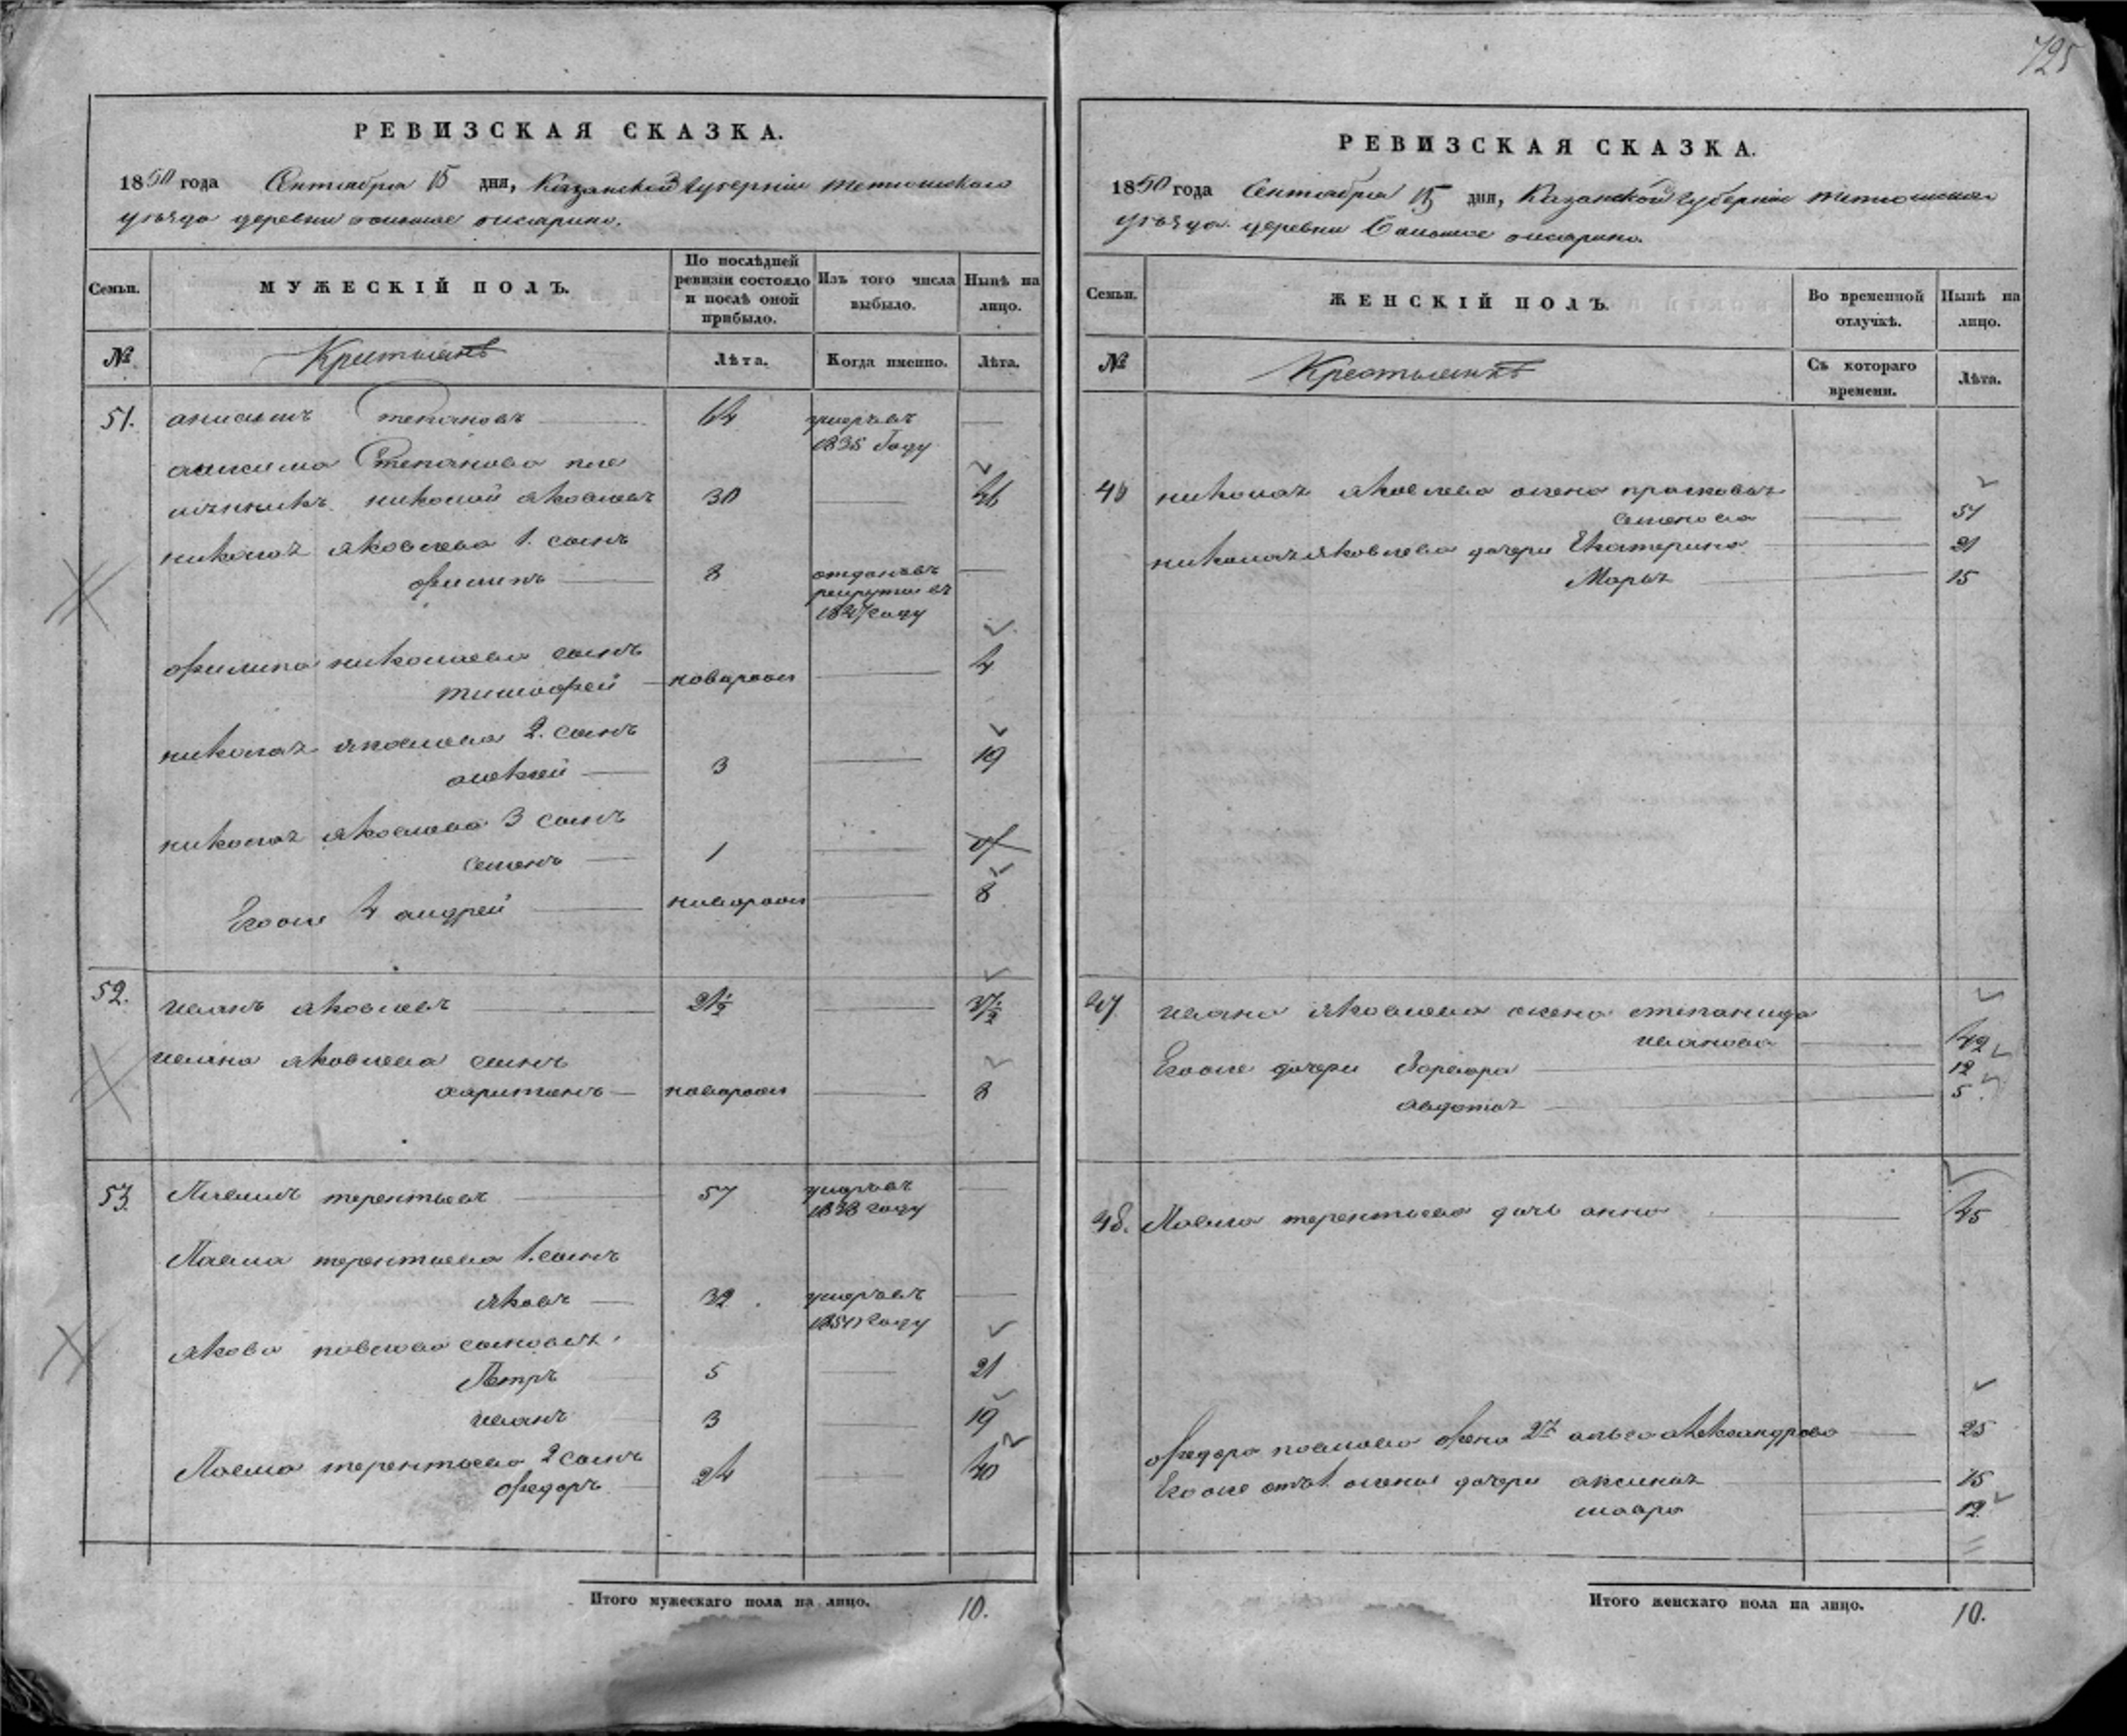 725
РЕВИЗСКАЯ СКАЗКА.
1850 года Сентября 15 дня, Казанской Губернии тетюшскаго
уѣзда деревни
Семьи.
МУЖЕСКІЙ ПОЛЪ.
По послѣдней ревизіи состояло и послѣ оной прибыло.
Изъ того числа выбыло.
Нынѣ на лицо.
№
Крестьянъ
Лѣта.
Когда именно.
Лѣта.
51. анисимъ Степановъ 64 умръ въ
1835 Году
анисима Степанова пле
мянникъ николай яковлевъ 30 46
николая яковлева 1. сынъ
филипъ 8 отданъ въ
рекруты въ
1847 году
филипа николаева сынъ
тимофей новорож 4
николая яковлева 2. сынъ
алексей 3 19
николая яковлева 3 сынъ
семенъ 1 17
Егоже 4 андрей новорож 8
52. иванъ яковлевъ 21½ 37½
ивана яковлева сынъ
харитонъ новорож 8
53. Павилъ терентьевъ 57 умръ въ
1838 году
Павла терентьева 1. сынъ
яковъ 32 умръ въ
1850 году
якова павлова сыновья
Петръ 5 21
иванъ 3 19
Павла терентьева 2 сынъ
федоръ 24 40
Итого мужескаго пола на лицо. 10.
РЕВИЗСКАЯ СКАЗКА.
1850 года Сентября 15 дня, Казанской Губернии тетюшскаго
уѣзда деревни
Семьи.
ЖЕНСКІЙ ПОЛЪ.
Во временной отлучкѣ.
Нынѣ на лицо.
№
Крестьянкѣ
Съ котораго времени.
Лѣта.
46 николая яковлева жена прасковья
семенова 51
николая яковлева дочери Екатерина 21
Марья 15
47. ивана яковлева жена степанида
иванова 42
Егоже дочери Варвара 12
авдотья 5
48. Павла терентьева дочь анна 45
федора павлова жена 2я александрова 25
Егоже отъ 1. жены дочери аксинья 15
мавра 12
Итого женскаго пола на лицо. 10.